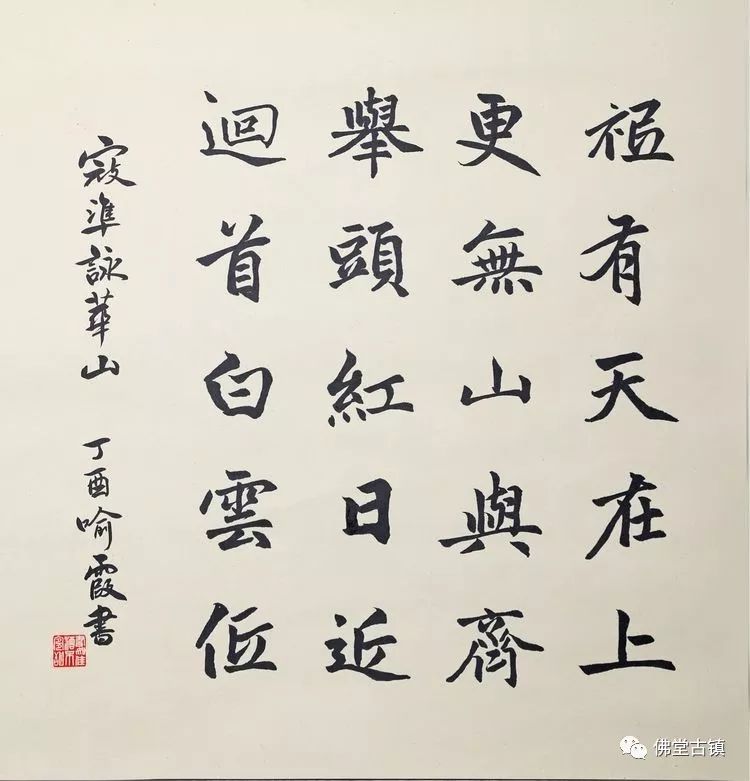 祗有天在上
更無山與齊
舉頭紅日近
迴首白雲低
寇準詠華山 丁酉喻霞書
佛堂古镇